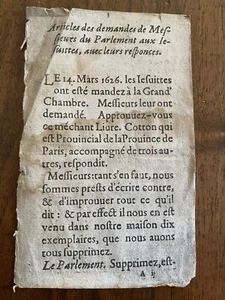 Articles des demandes de Mes-
sieurs du Parlement aux Ie-
suittes, auec leurs responces.
LE 14. Mars 1626. les Iesuittes
ont esté mandez à la Grand'
Chambre. Messieurs leur ont
demandé. Approuuez-vous
ce méchant Liure. Cotton qui
est Prouincial de la Prouince de
Paris, accompagné de trois au-
tres, respondit.
Messieurs: tant s'en faut, nous
sommes prests d'écrite contre,
& d'improuuer tout ce qu'il
dit: & par effect il nous en est
venu dans nostre maison dix
exemplaires, que nous auons
tous supprimez.
Le Parlement. Supprimez, est-
A ij